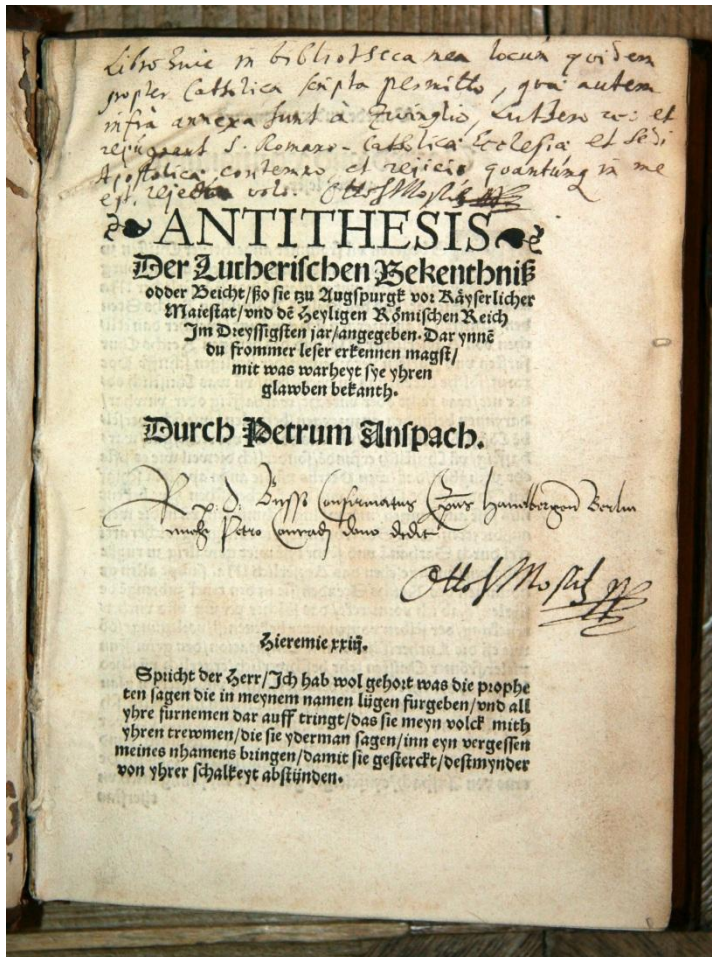 Libro huic in bibliotheca mea locum quidem
propter Catholica scripta permitto, quæ autem
infra annexa sunt à Zwinglio, Luthero et
repugnant S. Romano-Catholicæ Ecclesiæ et Sedi
Apostolicæ, contemno et rejicio quantumq in me
est, rejecta volo.
ANTITHESIS
Der Lutherischen Bekenthniß
odder Beicht/ ßo sie tzu Augspurgk vor Käyserlicher
Maiestat/ vnd dē Heyligen Römischen Reich
Im Dreyssigsten jar/ angegeben. Dar ynnē
du frommer leser erkennen magst/
mit was warheyt sye yhren
glawben bekanth.
Durch Petrum Anspach.
R p. d. Busso Confirmatus Havelbergen Berlin
Petro Conradi dono dedit
Hieremie xxiij.
Spricht der Herr/ Ich hab wol gehort was die prophe
ten sagen die in meynem namen lügen furgeben/ vnd all
yhre furnemen dar auff tringt/ das sie meyn volck mith
yhren trewmen/ die sie yderman sagen/ inn eyn vergessen
meines nhamens bringen/ damit sie gesterckt/ destmynder
von yhrer schalkeyt abstünden.